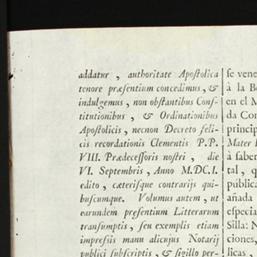 addatur, authoritate Apostolica
tenore præsentium concedimus, &
indulgemus, non obstantibus Cons-
titutionibus, & Ordinationibus
Apostolicis, necnon Decreto feli-
cis recordationis Clementis P.P.
VIII. Prædecessoris nostri, die
VI. Septembris, Anno M.DC.I.
edito, cæterisque contrarijs qui-
buscumque. Volumus autem, ut
earundem presentium Litterarum
transumptis, seu exemplis etiam
impressis manu alicujus Notarij
publici subscriptis, & sigillo per-
se vene
à la B
en el M
da Co
princip
Mater
à saber
tal, q
publica
añada
especia
Silla: N
ciones,
licas,